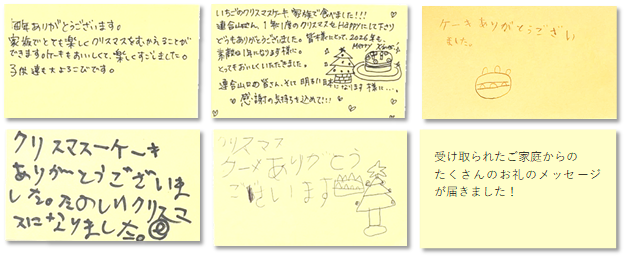 毎年ありがとうございます。
家族でとても楽しくクリスマスをむかえることが
できます。ケーキもおいしくて、楽しくすごしました。
子供達も大よろこびです。
いちごのクリスマスケーキ、家族で食べました!!!
連合山口さん、1年に1度のクリスマスをHappyにして下さり
どうもありがとうございました。皆様にとって、2026年も
素敵な1年になります様に。
Happy
とってもおいしくいただきました。
連合山口の皆さん、そして明るい日本になります様に…。
感謝の気持ちを込めて!!
ケーキありがとうござい
ました。
クリスマスーケーキ
ありがとうございま
した。たのしいクリスマ
スになりました。
クリスマス
ケーキありがとう
ございます
受け取られたご家庭からの
たくさんのお礼のメッセージ
が届きました！